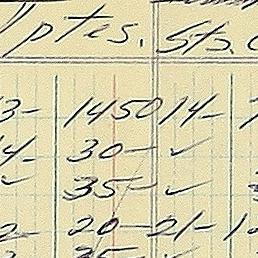 ptes. Sta.
3- 1450 14-
4- 30- ✓
✓ 35- ✓
2- 20- 21- 1
35-